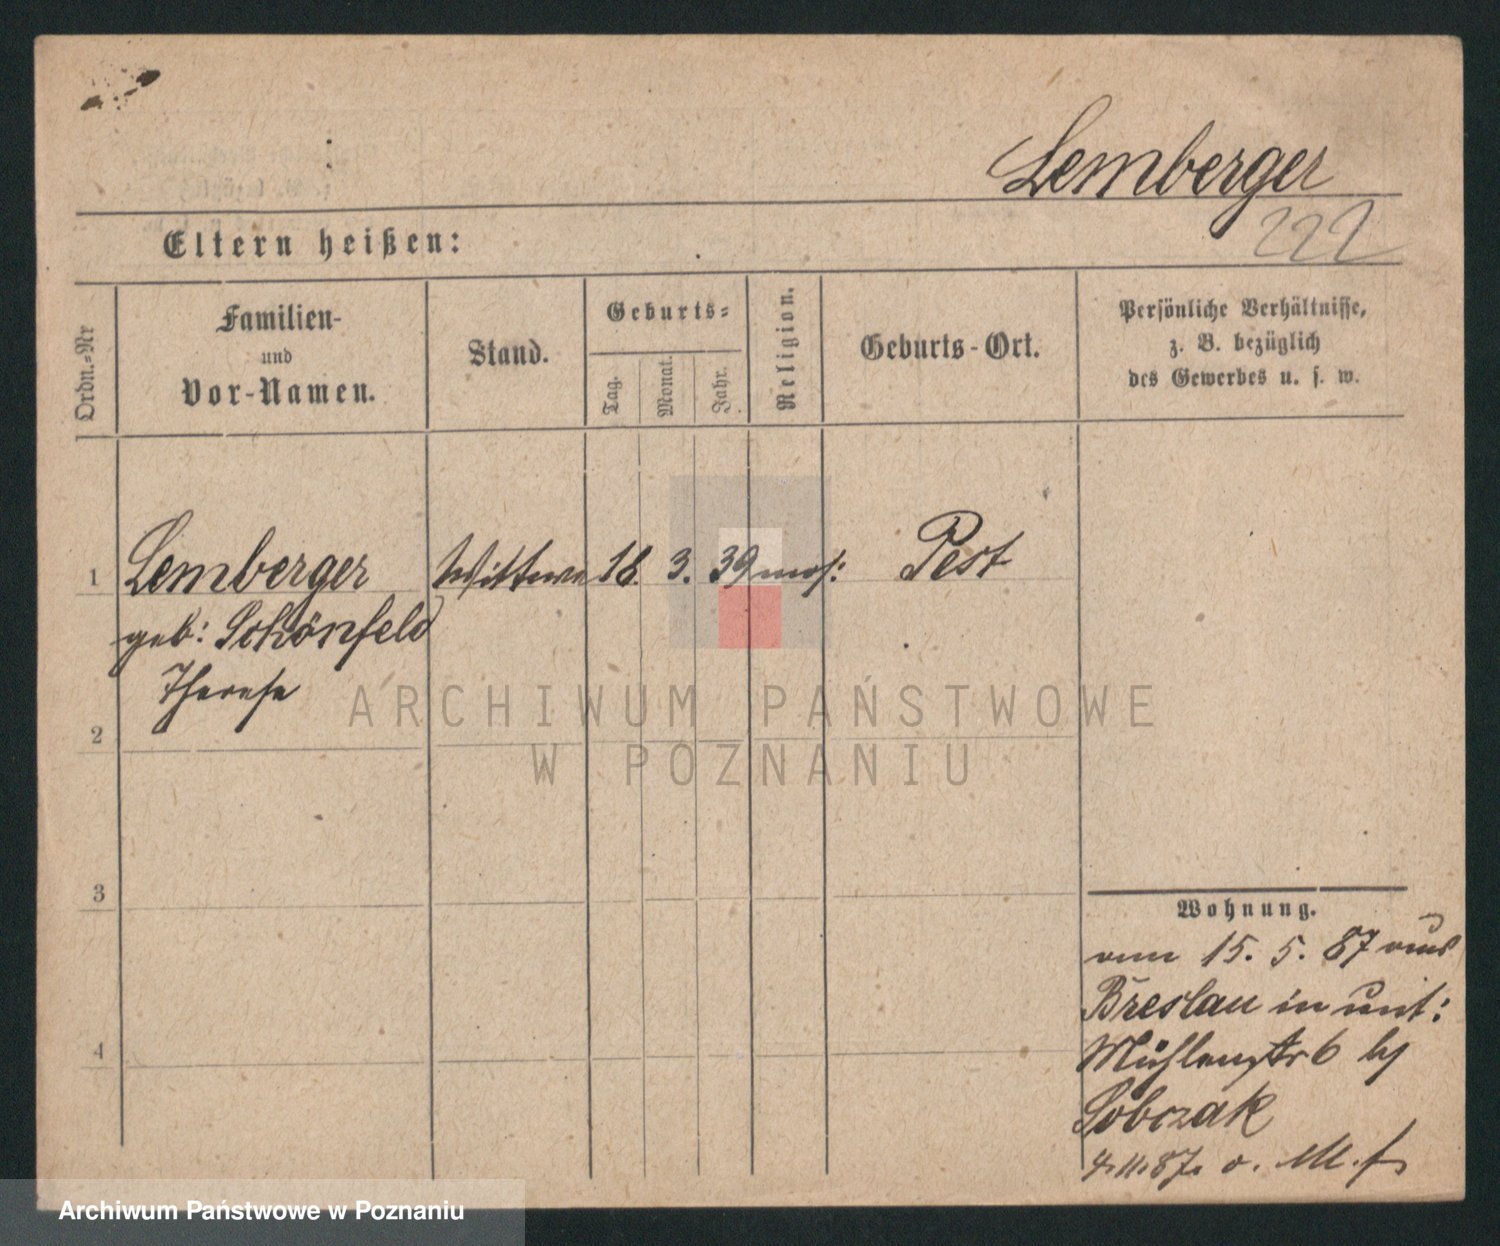 Lemberger
222
Eltern heißen:
Ordn.-Nr
Familien-
und
Vor-Namen.
Stand.
Geburts-
Tag.
Monat.
Jahr.
Religion.
Geburts-Ort.
Persönliche Verhältnisse,
z. B. bezüglich
des Gewerbes u. s. w.
1 Lemberger Wittwe 18. 3. 39 mos: Pest
geb: Schönfeld
Therese
2
3
4
Wohnung.
15. 5. 87 aus
Breslau in unt:
Mühlenstr 6 by
Sobczak
4. 11. 87. o. M. f.
ARCHIWUM PAŃSTWOWE
W POZNANIU
Archiwum Państwowe w Poznaniu